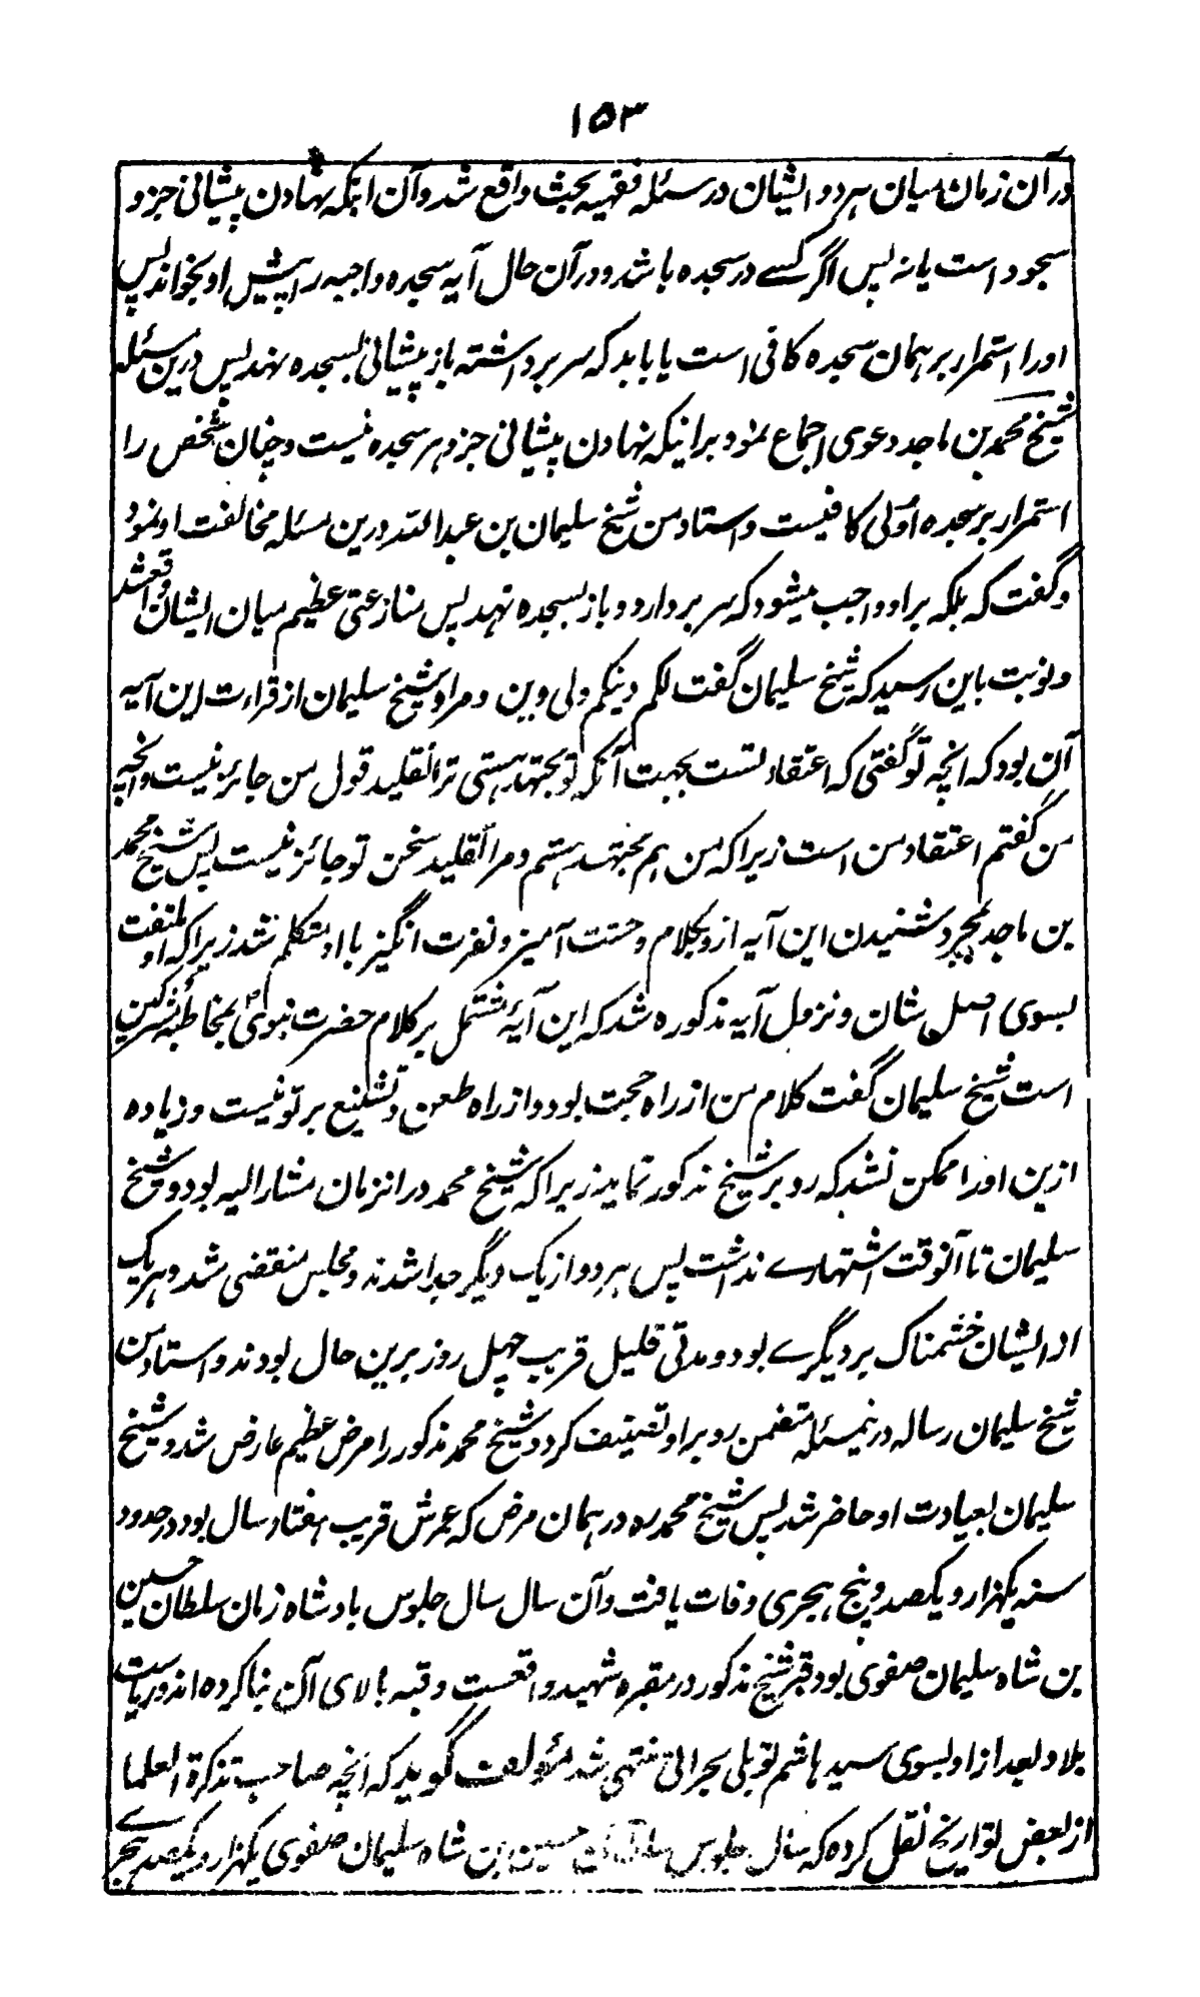 ۱۵۳
درآن زمان میان ہر دو ایشان در مسئلہ فقہیہ بحث واقع شد و آن اینکہ نہادن پیشانی جزو
سجود است یا نہ پس اگر کسے در سجدہ باشد و درآن حال آیہ سجدہ واجبہ را پیش او بخواند پس
اورا استمرار بر ہمان سجدہ کافی است یا باید کہ سر برداشتہ باز پیشانی بسجدہ نہد پس درین مسئلہ
شیخ محمد بن ماجد دعوی اجماع نمود برانیکہ نہادن پیشانی جزو ہر سجدہ نیست و چنان شخص را
استمرار بر سجدہ اولی کافیست و استاد من شیخ سلیمان بن عبد اللہ درین مسئلہ مخالفت او نمود
و گفت کہ بلکہ براو واجب میشود کہ سر بردارد و باز بسجدہ نہد پس منازعتی عظیم میان ایشان واقع شد
و نوبت باین رسید کہ شیخ سلیمان گفت لکم دینکم ولی دین و مراد شیخ سلیمان از قراءت این آیہ
آن بود کہ انچہ تو گفتی کہ اعتقاد تست بجہت آنکہ تو مجتہد ہستی ترا تقلید قول من جائز نیست و انچہ
من گفتم اعتقاد من است زیرا کہ من ہم مجتہد ہستم و مرا تقلید سخن تو جائز نیست پس شیخ محمد
بن ماجد بمجرد شنیدن این آیہ ازو بکلام وحشت آمیز و نفرت انگیز با او متکلم نشد زیرا کہ او ملتفت
بسوی اصل شان و نزول آیہ مذکورہ شد کہ این آیۂ مشتمل بر کلام حضرت نبوی بمخاطبہ مشرکین
است شیخ سلیمان گفت کلام من از راہ حجت بود و از راہ طعن و تشنیع بر تو نیست و زیادہ
ازین اورا ممکن نشد کہ رد بر شیخ مذکور نماید زیرا کہ شیخ محمد در انزمان مشار الیہ بود و شیخ
سلیمان تا آنوقت اشتہارے نداشت پس ہر دو از یک دیگر جدا شدند و مجلس منقضی شد و ہر یک
از ایشان خشمناک بر دیگرے بود و مدتی قلیل قریب چہل روز برین حال بودند و استاد من
شیخ سلیمان رسالہ درنیمسئلہ متضمن رد براو تصنیف کرد و شیخ محمد مذکور را مرض عظیم عارض شد و شیخ
سلیمان بعیادت او حاضر شد پس شیخ محمد رہ در ہمان مرض کہ عمرش قریب ہفتاد سال بود در حدود
سنہ یکہزار و یکصد و پنج ہجری وفات یافت و آن سال سال جلوس بادشاہ زمان سلطان حسین
بن شاہ سلیمان صفوی بود و قبر شیخ مذکور در مقبرہ مشہد واقعست و قبہ بالای آن بنا کردہ اند و ریاست
بلاد بعد از او بسوی سید ہاشم توبلی بحرانی منتہی شد مؤلف گوید کہ انچہ صاحب تذکرۃ العلما
از بعض تواریخ نقل کردہ کہ سال جلوس سلطان حسین بن شاہ سلیمان صفوی یکہزار و یکصد ہجرے